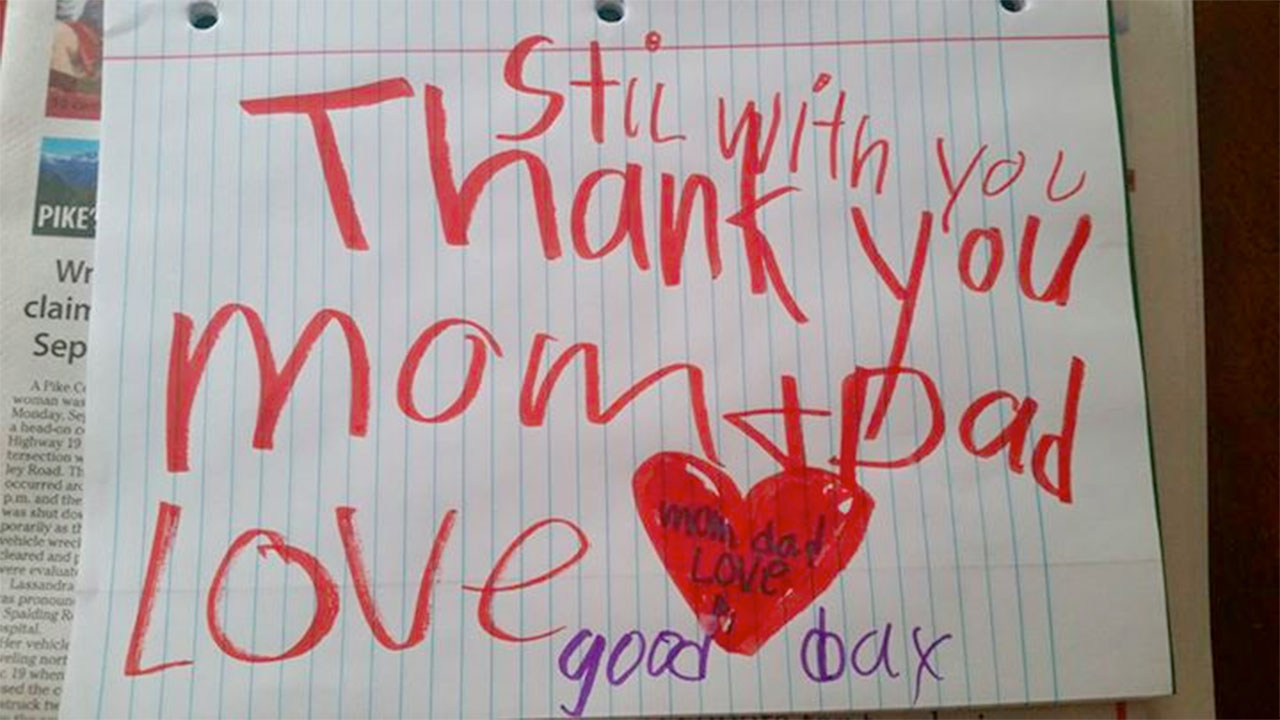 Stil with you
Thank you
mom + Dad
Love
mom dad
Love
good bax
PIKE'
Wr
claim
Sep
A Pike Co
woman was
Monday, Sep
a head-on c
Highway 19
tersection w
ley Road. Th
occurred aro
p.m. and the
was shut do
porarily as th
vehicle wreck
cleared and p
were evaluat
Lassandra
as pronoun
Spalding R
ospital.
Her vehicle
veling nort
. 19 when
sed the c
struck he